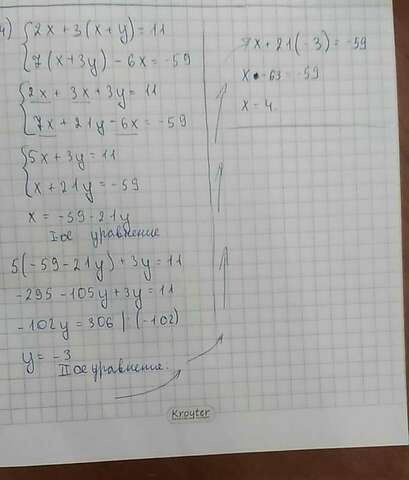 4) { 2x + 3(x + y) = 11
7(x + 3y) - 6x = -59
{ 2x + 3x + 3y = 11
7x + 21y - 6x = -59
{ 5x + 3y = 11
x + 21y = -59
x = -59 - 21y
I-ое уравнение
5(-59 - 21y) + 3y = 11
-295 - 105y + 3y = 11
-102y = 306 | (-102)
y = -3
II ое уравнение.
7x + 21(-3) = -59
x - 63 = -59
x = 4.
Kroyter